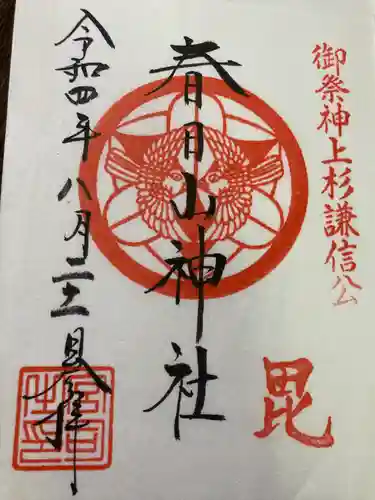 御祭神上杉謙信公
毘
春日山神社
令和四年八月二十一日参拝